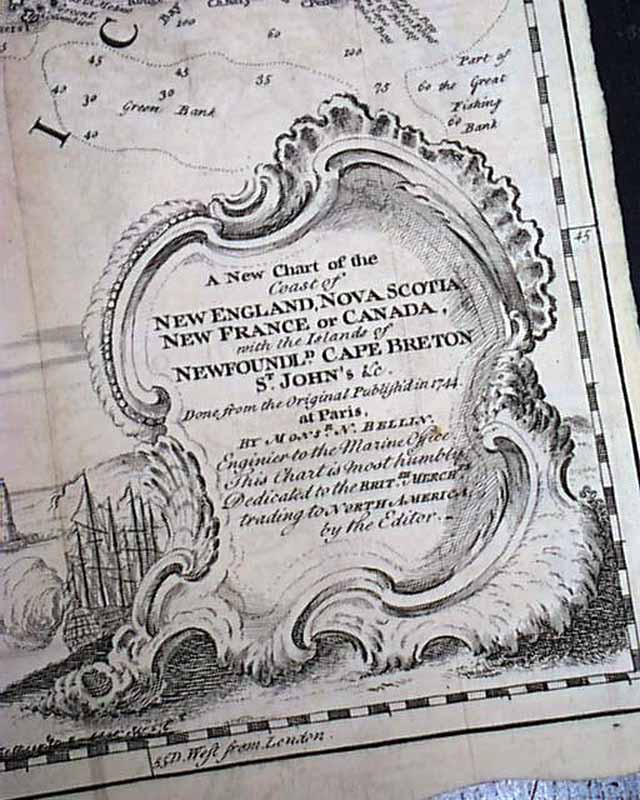 100
60
100
45
45
35
75
40
30
30
Green Bank
40
I
C
Part of
60 the Great
Fishing
60 Bank
45
A New Chart of the
Coast of
NEW ENGLAND, NOVA SCOTIA,
NEW FRANCE or CANADA,
with the Islands of
NEWFOUNDL.D CAPE BRETON
ST. JOHN'S &c.
Done from the Original Publish'd in 1744
at Paris,
BY MONSR. N. BELLIN.
Enginier to the Marine Office
This Chart is most humbly
Dedicated to the BRITSH. MERCHTS
trading to NORTH AMERICA,
by the Editor.
55 D. West from London.